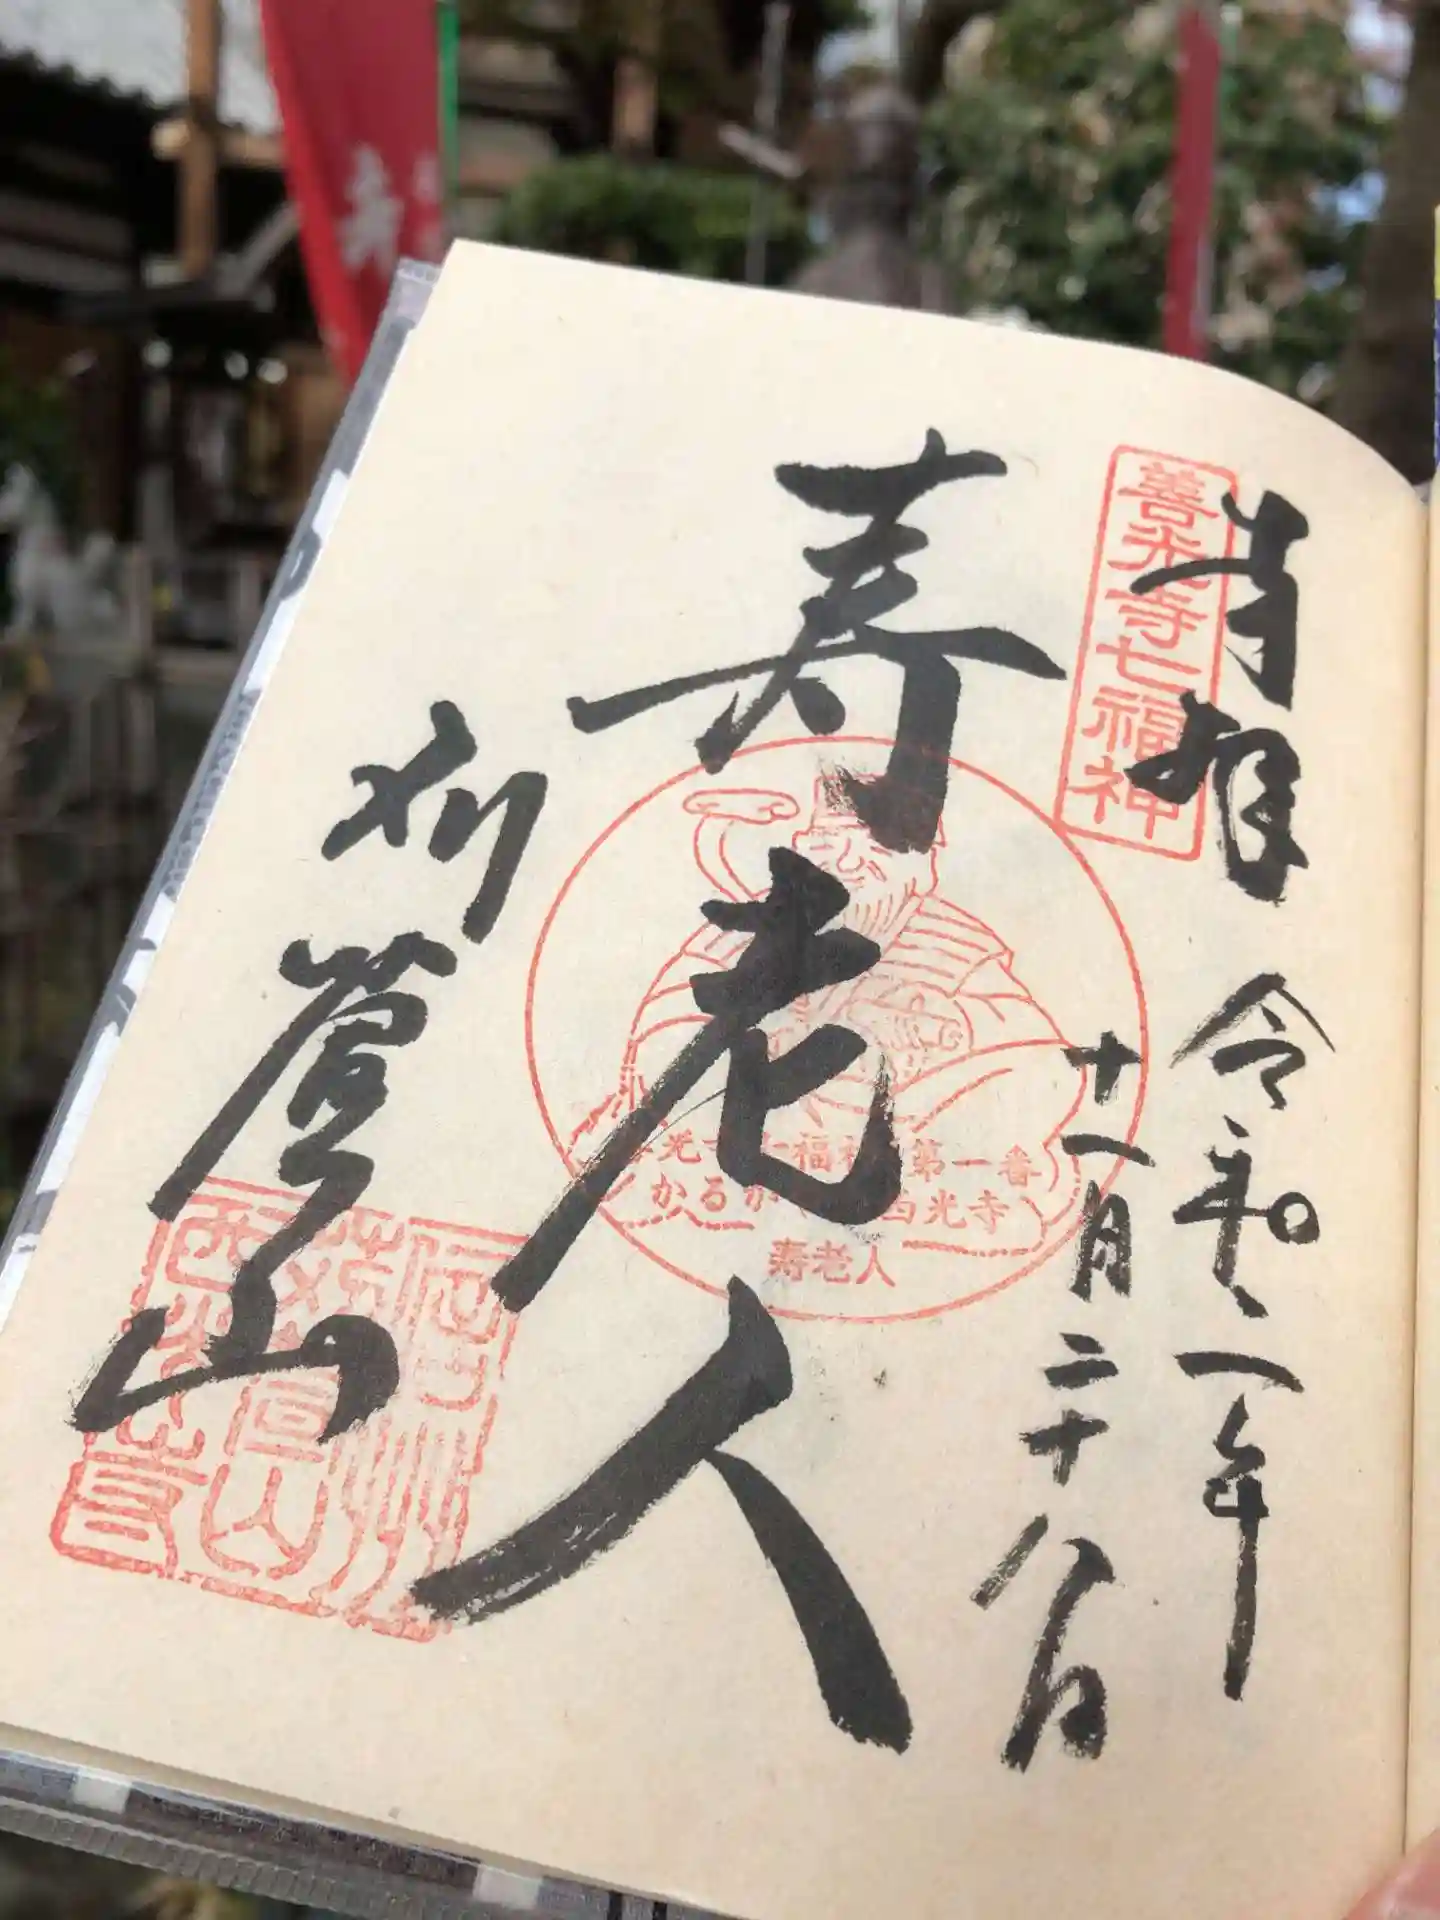 奉拝
令和二年
十一月二十八日
善光寺七福神
寿老人
善光寺七福神 第一番
かるか 西光寺
寿老人
苅萱山